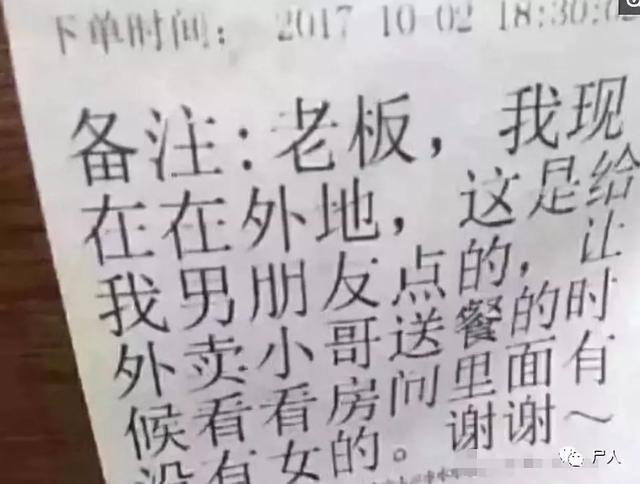 下单时间： 2017-10-02 18:30:02
备注：老板，我现
在在外地，这是给
我男朋友点的，让
外卖小哥送餐的时
候看看房间里面有
没有女的。谢谢～
尸人